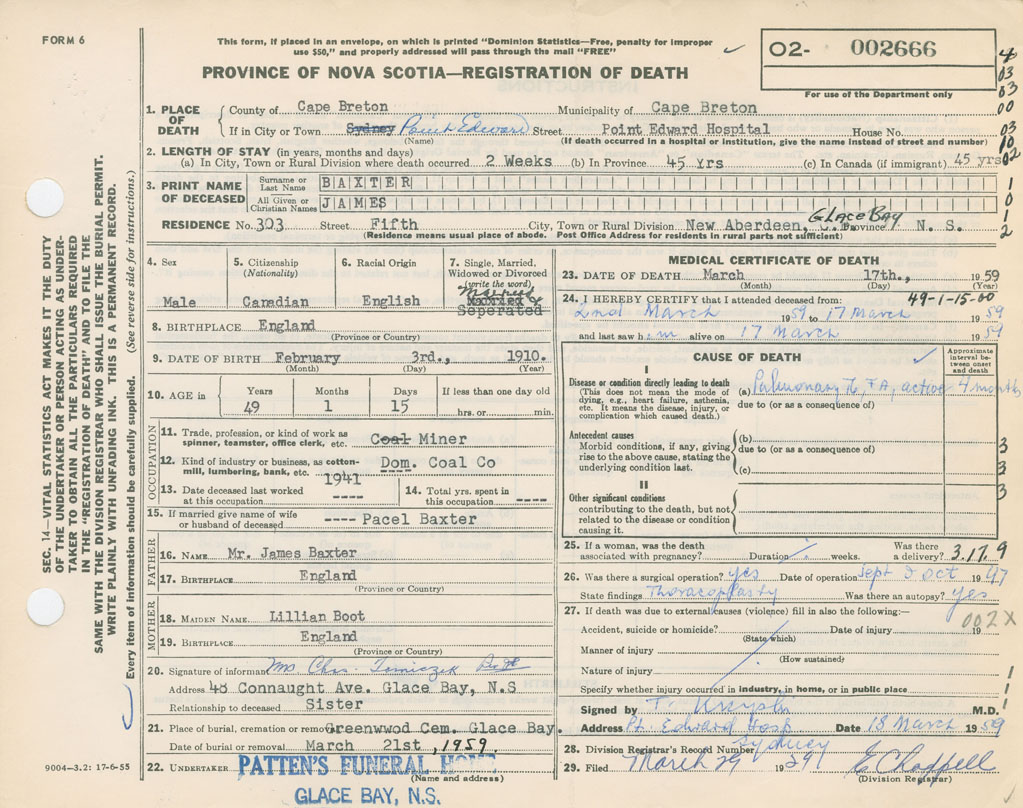 FORM 6
This form, if placed in an envelope, on which is printed "Dominion Statistics—Free, penalty for improper
use $50," and properly addressed will pass through the mail "FREE"
PROVINCE OF NOVA SCOTIA—REGISTRATION OF DEATH
O2- 002666
For use of the Department only
4
03
03
00
03
10
02
1
0
1
2
SEC. 14—VITAL STATISTICS ACT MAKES IT THE DUTY
OF THE UNDERTAKER OR PERSON ACTING AS UNDER-
TAKER TO OBTAIN ALL THE PARTICULARS REQUIRED
IN THE "REGISTRATION OF DEATH" AND TO FILE THE
SAME WITH THE DIVISION REGISTRAR WHO SHALL ISSUE THE BURIAL PERMIT.
WRITE PLAINLY WITH UNFADING INK. THIS IS A PERMANENT RECORD.
Every item of information should be carefully supplied. (See reverse side for instructions.)
1. PLACE OF DEATH
County of Cape Breton Municipality of Cape Breton
If in City or Town Sydney Point Edward Street Point Edward Hospital House No.
(Name) (If death occurred in a hospital or institution, give the name instead of street and number)
2. LENGTH OF STAY (in years, months and days)
(a) In City, Town or Rural Division where death occurred 2 Weeks (b) In Province 45 Yrs (c) In Canada (if immigrant) 45 yrs
3. PRINT NAME OF DECEASED
Surname or Last Name BAXTER
All Given or Christian Names JAMES
RESIDENCE No. 303 Street Fifth City, Town or Rural Division New Aberdeen, GLACE BAY Province N. S.
(Residence means usual place of abode. Post Office Address for residents in rural parts not sufficient)
4. Sex
Male
5. Citizenship
(Nationality)
Canadian
6. Racial Origin
English
7. Single, Married,
Widowed or Divorced
(write the word)
Married
Seperated
8. BIRTHPLACE England
(Province or Country)
9. DATE OF BIRTH February 3rd., 1910.
(Month) (Day) (Year)
10. AGE in
Years Months Days If less than one day old
49 1 15 hrs. or min.
OCCUPATION
11. Trade, profession, or kind of work as
spinner, teamster, office clerk, etc. Coal Miner
12. Kind of industry or business, as cotton-
mill, lumbering, bank, etc. Dom. Coal Co
13. Date deceased last worked
at this occupation 1941 ----
14. Total yrs. spent in
this occupation ----
15. If married give name of wife
or husband of deceased ---- Pacel Baxter
FATHER
16. NAME Mr. James Baxter
17. BIRTHPLACE England
(Province or Country)
MOTHER
18. MAIDEN NAME Lillian Boot
19. BIRTHPLACE England
(Province or Country)
20. Signature of informant Mrs Chas.
Address 48 Connaught Ave. Glace Bay, N.S
Relationship to deceased Sister
21. Place of burial, cremation or removal Greenwwod Cem. Glace Bay.
Date of burial or removal March 21st, 1959.
22. UNDERTAKER PATTEN'S FUNERAL HOME
(Name and address)
GLACE BAY, N.S.
9004—3.2: 17-6-55
MEDICAL CERTIFICATE OF DEATH
23. DATE OF DEATH March 17th., 1959
(Month) (Day) (Year)
24. I HEREBY CERTIFY that I attended deceased from: 49-1-15-00
2nd March 1959 to 17 March 1959
and last saw him alive on 17 March 1959
CAUSE OF DEATH
Approximate
interval be-
tween onset
and death
I
Disease or condition directly leading to death
(This does not mean the mode of
dying, e.g., heart failure, asthenia,
etc. It means the disease, injury, or
complication which caused death.)
(a) Pulmonary Tb, FA, active 4 months
due to (or as a consequence of)
Antecedent causes
Morbid conditions, if any, giving
rise to the above cause, stating the
underlying condition last.
(b)
due to (or as a consequence of)
(c)
3
3
3
II
Other significant conditions
contributing to the death, but not
related to the disease or condition
causing it.
25. If a woman, was the death
associated with pregnancy? Duration weeks. Was there
a delivery? 3.17.9
26. Was there a surgical operation? yes Date of operation Sept & Oct 1947
State findings Thoracoplasty Was there an autopsy? yes
27. If death was due to external causes (violence) fill in also the following:—
002X
Accident, suicide or homicide? Date of injury 19
(State which)
Manner of injury
(How sustained)
Nature of injury
Specify whether injury occurred in industry, in home, or in public place
1
1
Signed by T. M.D.
Address Pt. Edward Hosp Date 18 March 1959
Sydney
28. Division Registrar's Record Number
29. Filed March 29 1959 E Chappell
(Division Registrar)